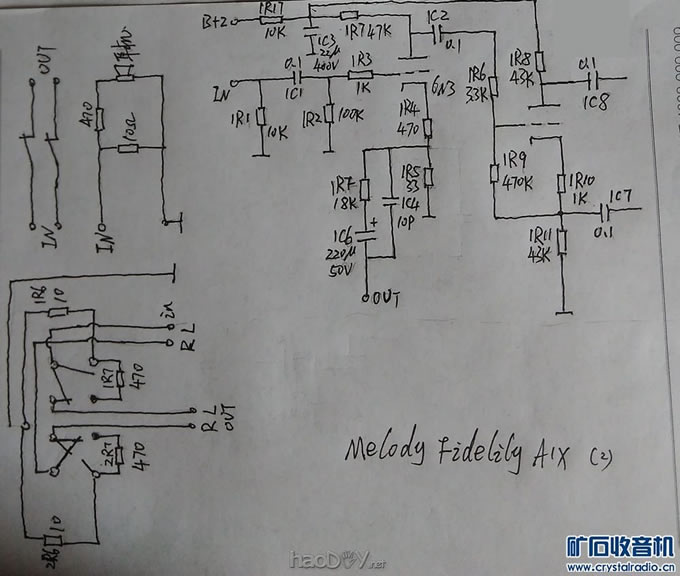 B+2
1R17
10K
1C3
22μ
400V
1R7 47K
1C2
0.1
IN
0.1
1C1
1R3
1K
6N3
1R1
10K
1R2
100K
1R4
470
1R6
33K
1R8
43K
0.1
1C8
1R7
18K
1C4
10P
1R5
33
1R9
470K
1R10
1K
1C7
0.1
+
1C6
220μ
50V
1R11
43K
OUT
OUT
IN
470
10Ω
IN
1R6
10
in
R L
1R7
470
R L
OUT
2R7
470
2R6
10
Melody Fidelily A1X (2)
haoDIY.net
矿石收音机
www.crystalradio.cn